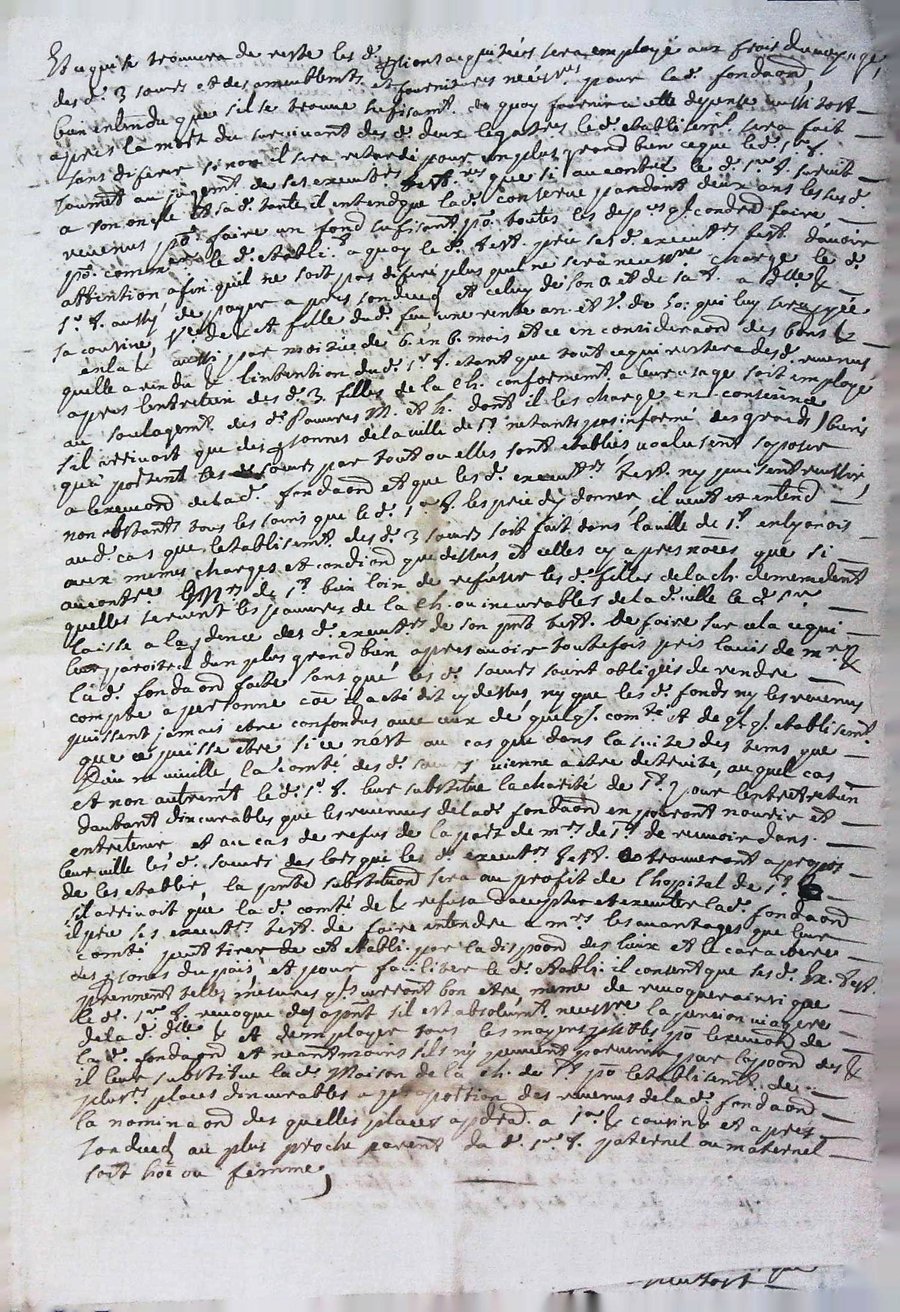 Et ce qui se trouvera de reste les d. pensions acquitées sera employé aux frais du voyage
des d. 3 sœurs et des ameublemts et fournitures necess.res pour la d. fondaon
bien entendu que sil se trouve sufisamt de quoy fournir a cette depense aussi tost
apres la mort du survivant des d. deux legatres le d. etablisemt sera fait
sans diferer sinon il sera retardé pour un plus grand bien ce que led. sr
au jugemt de ses execut.rs test.res que si au contre le d. sr T. survit
a son oncle et sa d. tante il entend que la d. conserve pendant deux ans les susd.
revenus po. faire un fond sufisant po. toutes les dep.ces q'l condra faire
po. commencer le d. etabli.t a quoy le d. test. prie ses d. execut.rs test. d'avoir
attention afin qu'il ne soit pas diferé plus qu'il ne sera necess.re charge le d.
sr T. aussy de payer apres son deced et celuy de son O. et de sa T. a Dlle &
sa cousine, et fille du d. feu une rente an. et V. de 50. qui luy sera payée
aussi par moitié de 6. en 6. mois et ce en consideraon des bons &
quelle a rendu & l'intention du d. sr T. etant que tout ce qui restera des d. revenus
apres l'entretien des d. 3 filles de la Ch. conformemt a leur usage soit employé
au soulagemt des d. Pauvres M. et h. dont il les charge en conscience
sil arrivoit que des personnes de la ville de St netants pas informé des grands biens
que portent les sœurs par tout ou elles sont etablies voulusent s'oposer
a l'execuon de la d. fondaon et que les d. execut.rs test. ny pussent reussir,
non obstant tous les soins que le d. sr T. les prie dy donner, il veut et entend
au d. cas que letablisemt des d. 3 sœurs soit fait dans la ville de St en lyonois
aux memes charges et condion que dessus et celles cy apres nões que si
au contre Mrs de St bien loin de refuser les d. filles de la ch. demendent
quelles servent les pauvres de la Ch. ou incurables de la d. ville le d. sr
laisse a la pdence des d. execut.rs de son pnt test. de faire sur cela ce qui
leur paroitra d'un plus grand bien apres avoir toutefois pris lavis de mr &
la d. fondaon faite sans que les d. sœurs soint obligées de rendre
compte a personne cõe il a eté dit cy dessus, ny que les d. fonds ny les revenus
puissent jamais etre confondus avec ceux de quelq'. com.té et de q'lq'. etablisemt
que ce puisse etre si ce n'est au cas que dans la suite des tems que
Dieu ne vueille, la comté des d. sœurs vienne a etre detruite, au quel cas
et non autremt le d. sr T. leur substitue la charité de St pour l'entretien
dautant dincurables que les revenus de la d. fondaon en pouront nourir et
entretenir et au cas de refus de la part de mrs de St de recevoir dans
leur ville les d. sœurs des lors que les d. execut.rs test. trouveront a propos
de les etablir, la pnte substituon sera au profit de l'hopital de St
sil arrivoit que la d. comté de & refusa d'accepter et executer la d. fondaon
il prie ses execut.rs test. de faire entendre a mrs les avantages que leur
comté peut tirer de cet etabli. par la dispoon des lieux et le caractere
des psones du pais et pour faciliter le d. etabli. il consent que ses d. Ex. test.
prennent telles mesures q'ls verront bon etre, meme de revoquer ainsi que
le d. sr T. revoque des apnt sil est absolumt necess.re la pension viagere
de la d. Dlle & et demployer tous les moyens possibl. po l'execuon de
la d. fondaon et neantmoins sils ny peuvent parvenir par lapoon des &
il leur substitue la d. Maison de la ch. de St po letablisemt de
plus.rs places dincurables a proportion des revenus de la d. fondaon
la nominaon des quelles places apdra. a sr & cousin & et apres
son deced au plus proche parent du d. sr T. paternel ou maternel
soit hõe ou femme,